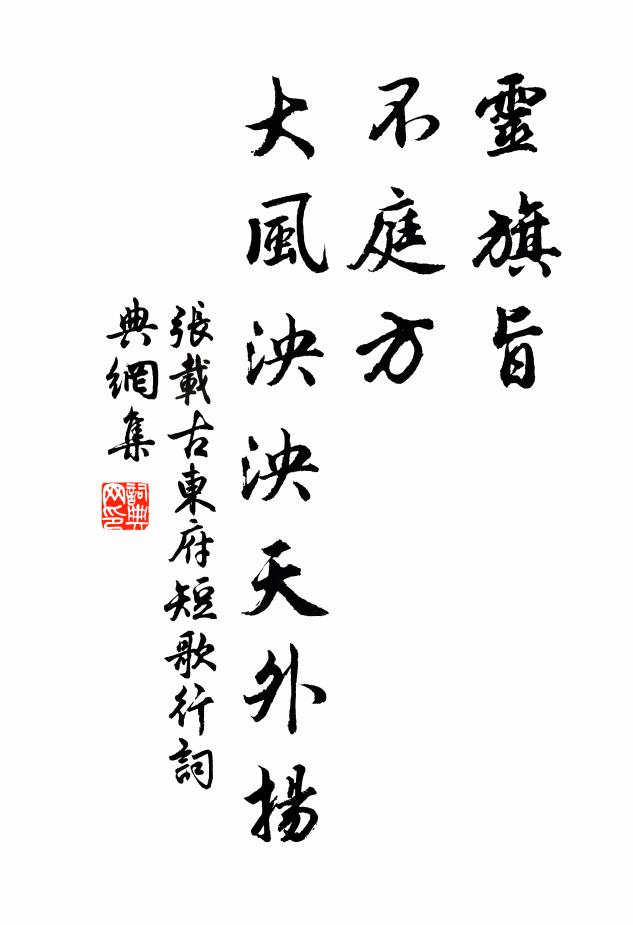 靈旗旨
不庭方
大風泱泱天外揚
張載古東府短歌行詞
典網集
詞典网印